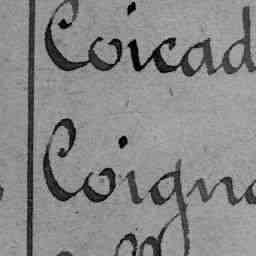 Coicad
Coigna